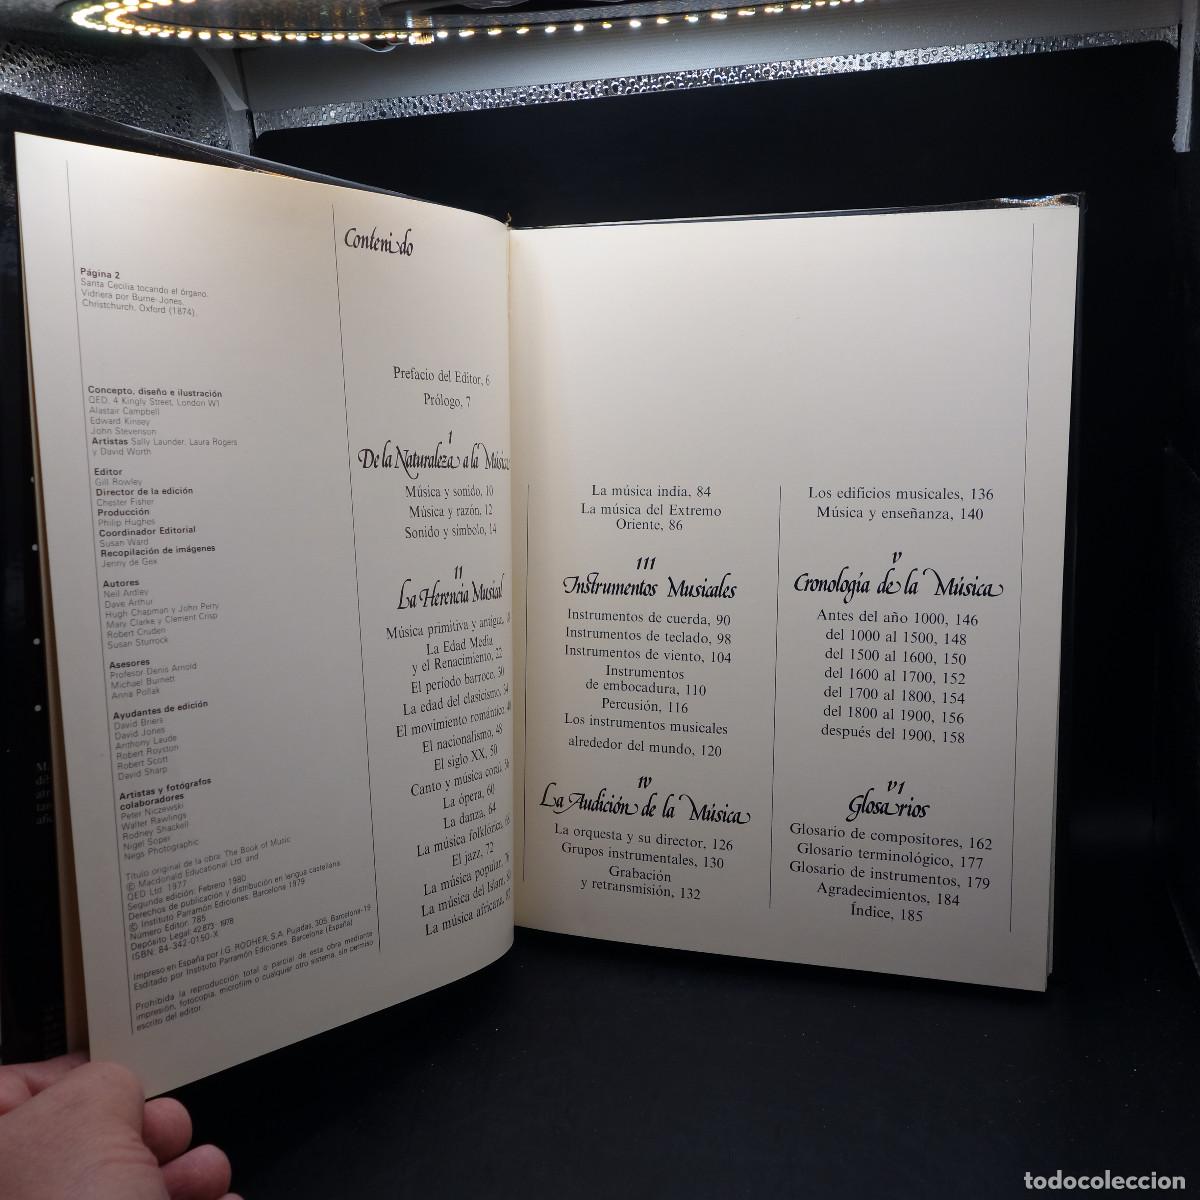 Página 2
Santa Cecilia tocando el órgano.
Vidriera por Burne-Jones,
Christchurch, Oxford (1874).
Concepto, diseño e ilustración
QED, 4 Kingly Street, London W1
Alastair Campbell
Edward Kinsey
John Stevenson
Artistas Sally Launder, Laura Rogers
y David Worth
Editor
Gill Rowley
Director de la edición
Chester Fisher
Producción
Philip Hughes
Coordinador Editorial
Susan Ward
Recopilación de imágenes
Jenny de Gex
Autores
Neil Ardley
Dave Arthur
Hugh Chapman y John Perry
Mary Clarke y Clement Crisp
Robert Cruden
Susan Sturrock
Asesores
Profesor Denis Arnold
Michael Burnett
Anna Pollak
Ayudantes de edición
David Briers
David Jones
Anthony Laude
Robert Royston
Robert Scott
David Sharp
Artistas y fotógrafos
colaboradores
Peter Niczewski
Walter Rawlings
Rodney Shackell
Nigel Soper
Negs Photographic
Título original de la obra: The Book of Music
© Macdonald Educational Ltd. and
QED Ltd. 1977
Segunda edición: Febrero 1980
Derechos de publicación y distribución en lengua castellana
© Instituto Parramón Ediciones. Barcelona 1979
Número Editor: 785
Depósito Legal: 42873-1978
ISBN: 84-342-0150-X
Impreso en España por I.G. RODHER, S.A. Pujadas, 305, Barcelona-19
Esditado por Instituto Parramón Ediciones. Barcelona (España)
Prohibida la reproducción total o parcial de esta obra mediante
impresión, fotocopia, microfilm o cualquier otro sistema, sin permiso
escrito del editor.
Contenido
Prefacio del Editor, 6
Prólogo, 7
1
De la Naturaleza a la Música
Música y sonido, 10
Música y razón, 12
Sonido y símbolo, 14
11
La Herencia Musical
Música primitiva y antigua,
La Edad Media
y el Renacimiento, 22
El periodo barroco, 30
La edad del clasicismo, 34
El movimiento romántico, 40
El nacionalismo, 48
El siglo XX, 50
Canto y música coral, 56
La ópera, 60
La danza, 64
La música folklórica, 68
El jazz, 72
La música popular, 76
La música del Islam, 80
La música africana, 82
La música india, 84
La música del Extremo
Oriente, 86
111
Instrumentos Musicales
Instrumentos de cuerda, 90
Instrumentos de teclado, 98
Instrumentos de viento, 104
Instrumentos
de embocadura, 110
Percusión, 116
Los instrumentos musicales
alrededor del mundo, 120
IV
La Audición de la Música
La orquesta y su director, 126
Grupos instrumentales, 130
Grabación
y retransmisión, 132
Los edificios musicales, 136
Música y enseñanza, 140
V
Cronología de la Música
Antes del año 1000, 146
del 1000 al 1500, 148
del 1500 al 1600, 150
del 1600 al 1700, 152
del 1700 al 1800, 154
del 1800 al 1900, 156
después del 1900, 158
V1
Glosarios
Glosario de compositores, 162
Glosario terminológico, 177
Glosario de instrumentos, 179
Agradecimientos, 184
Índice, 185
todocoleccion